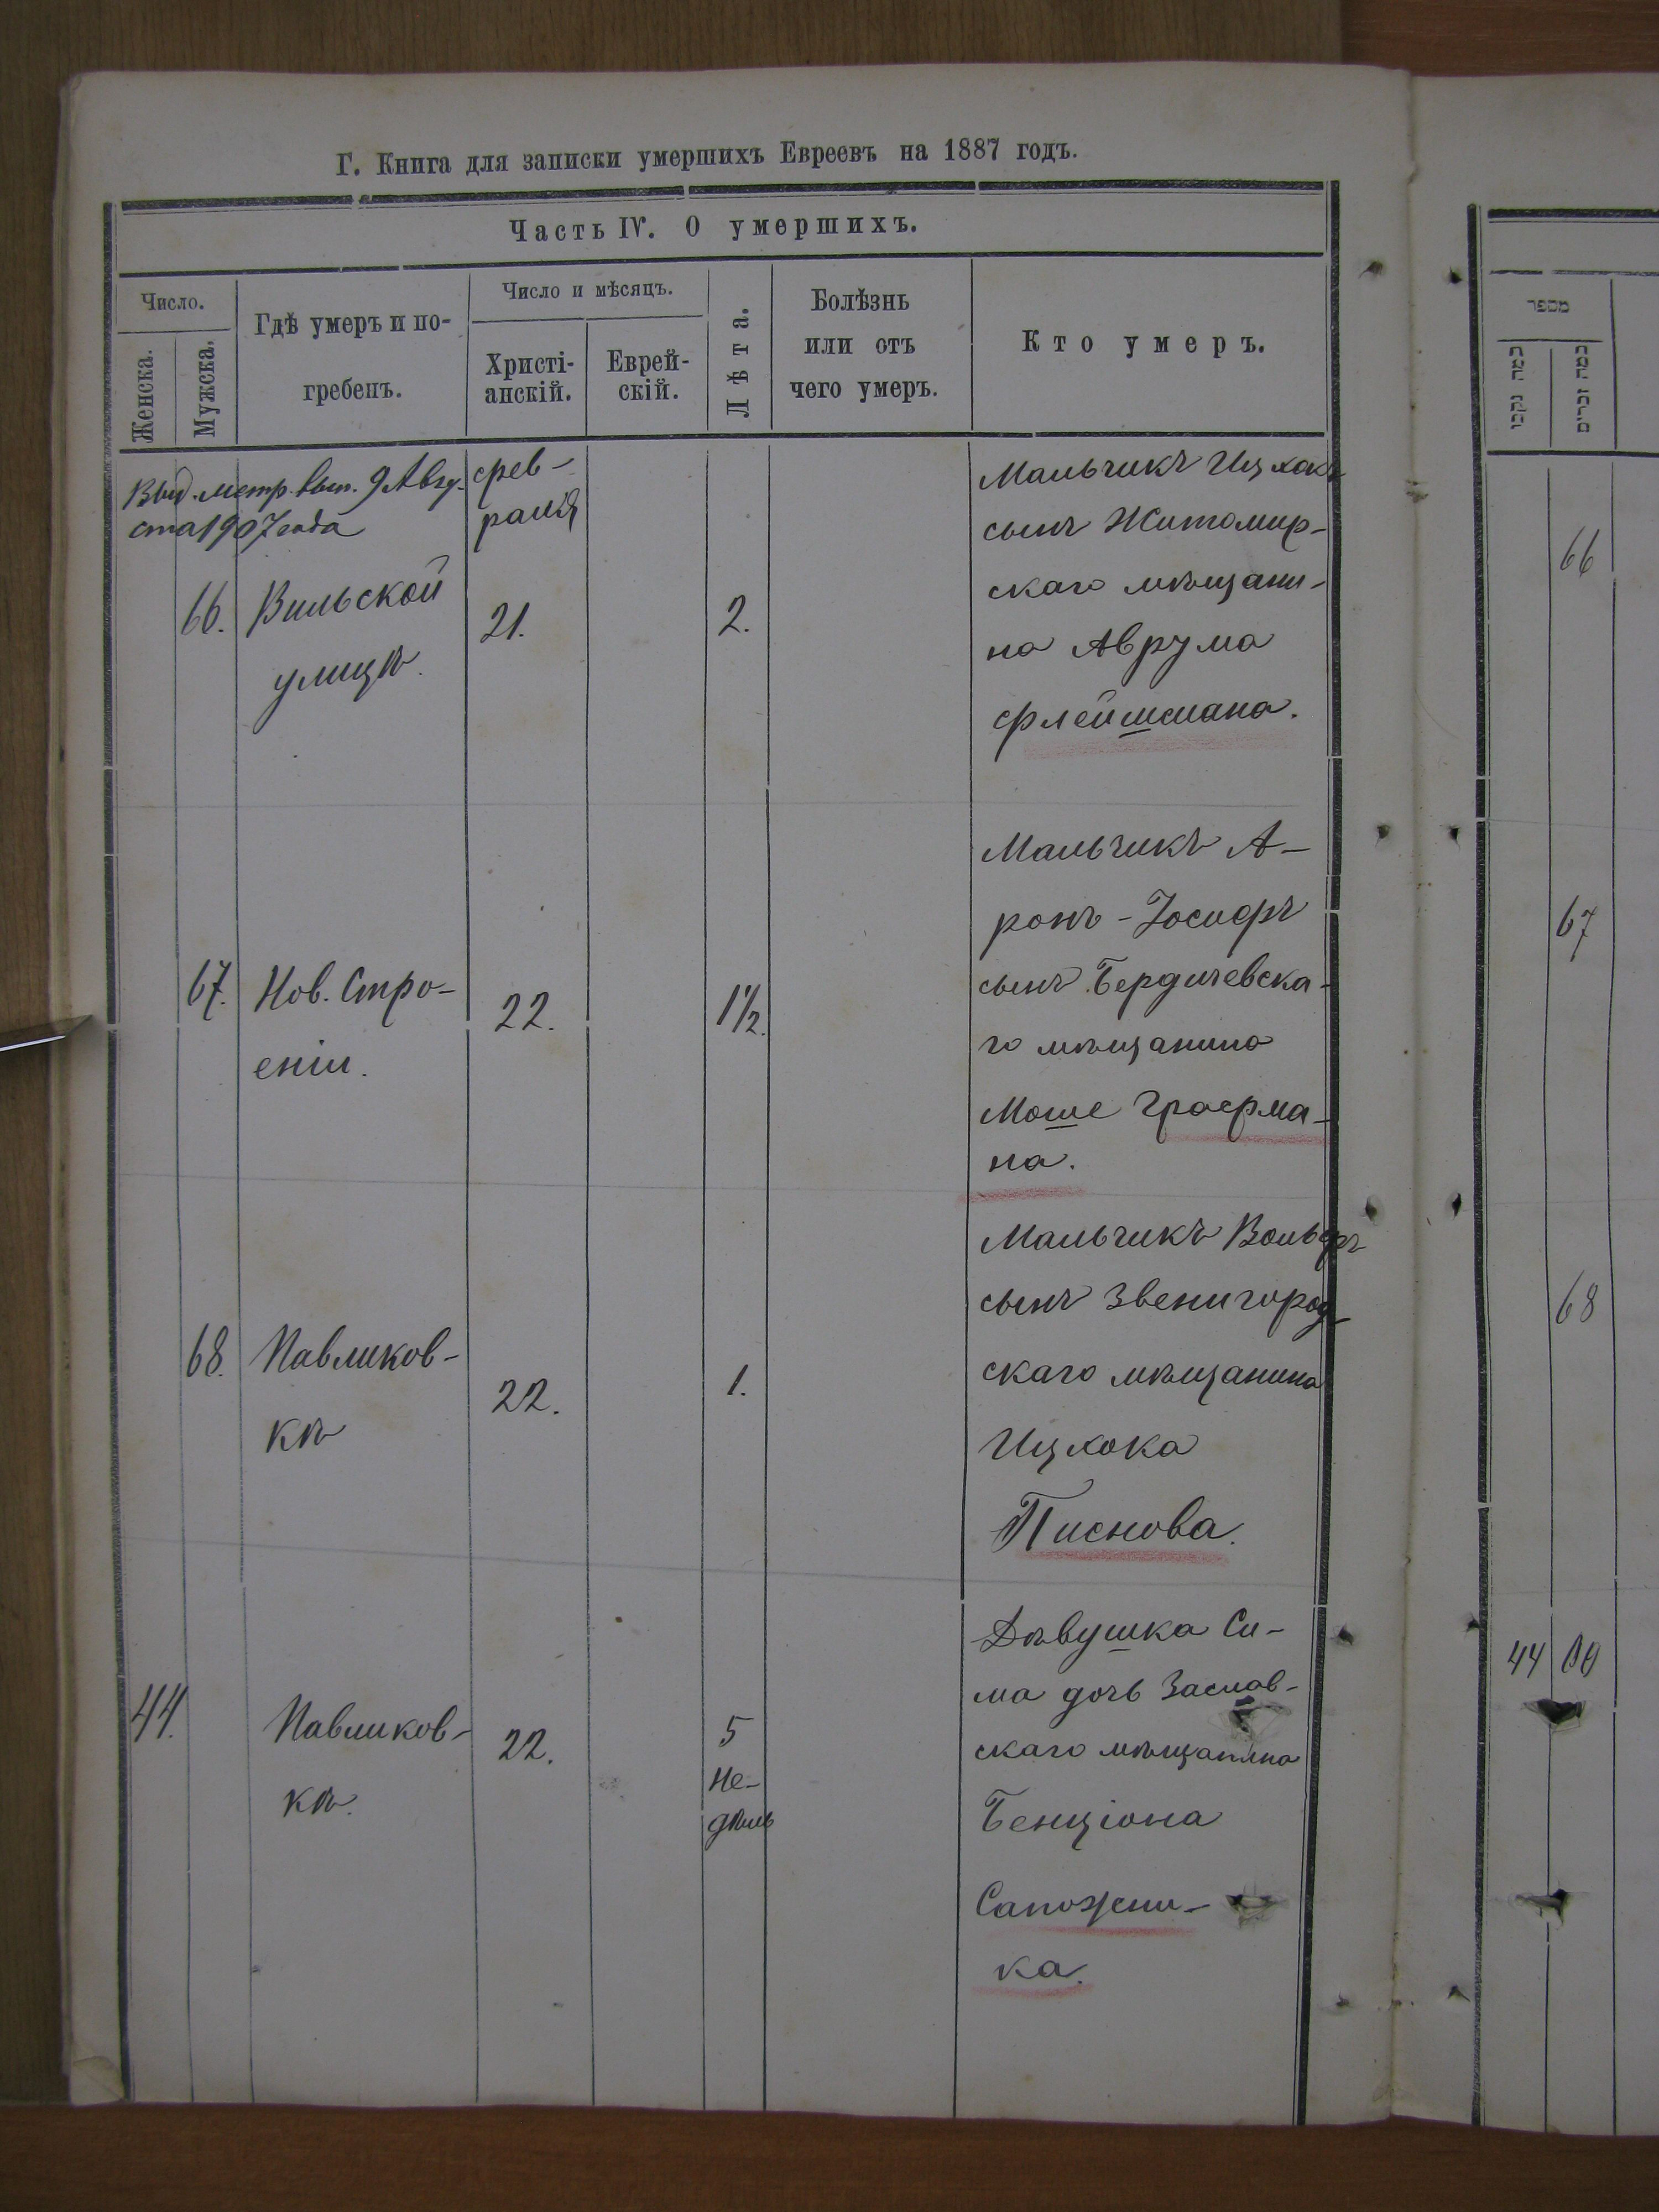 Г. Книга для записки умершихъ Евреевъ на 1887 годъ.
Часть IV. О умершихъ.
Число.
Женска.
Мужска.
Гдѣ умеръ и по-
гребенъ.
Число и мѣсяцъ.
Христі-
анскій.
Еврей-
скій.
Лѣта.
Болѣзнь
или отъ
чего умеръ.
Кто умеръ.
Выд. метр. вып. 9 Авгу-
ста 1907 года
фев-
раля
66.
Вильской
улицѣ.
21.
2.
Мальчикъ Ицхокъ
сынъ Житомир-
скаго мѣщани-
на Аврума
Флейшмана.
67.
Нов. Стро-
еніи.
22.
1½.
Мальчикъ А-
ронъ-Іосифъ
сынъ Бердичевска-
го мѣщанина
Моше Графма-
на.
68.
Павликов-
кѣ
22.
1.
Мальчикъ Вольфъ
сынъ Звенигород-
скаго мѣщанина
Ицхока
Писнова.
44.
Павликов-
кѣ.
22.
5
не-
дѣль
Дѣвушка Си-
ма дочь Заслав-
скаго мѣщанина
Бенціона
Сапожни-
ка.
מספר
כמה נקבו
כמה זכרים
66
67
68
44